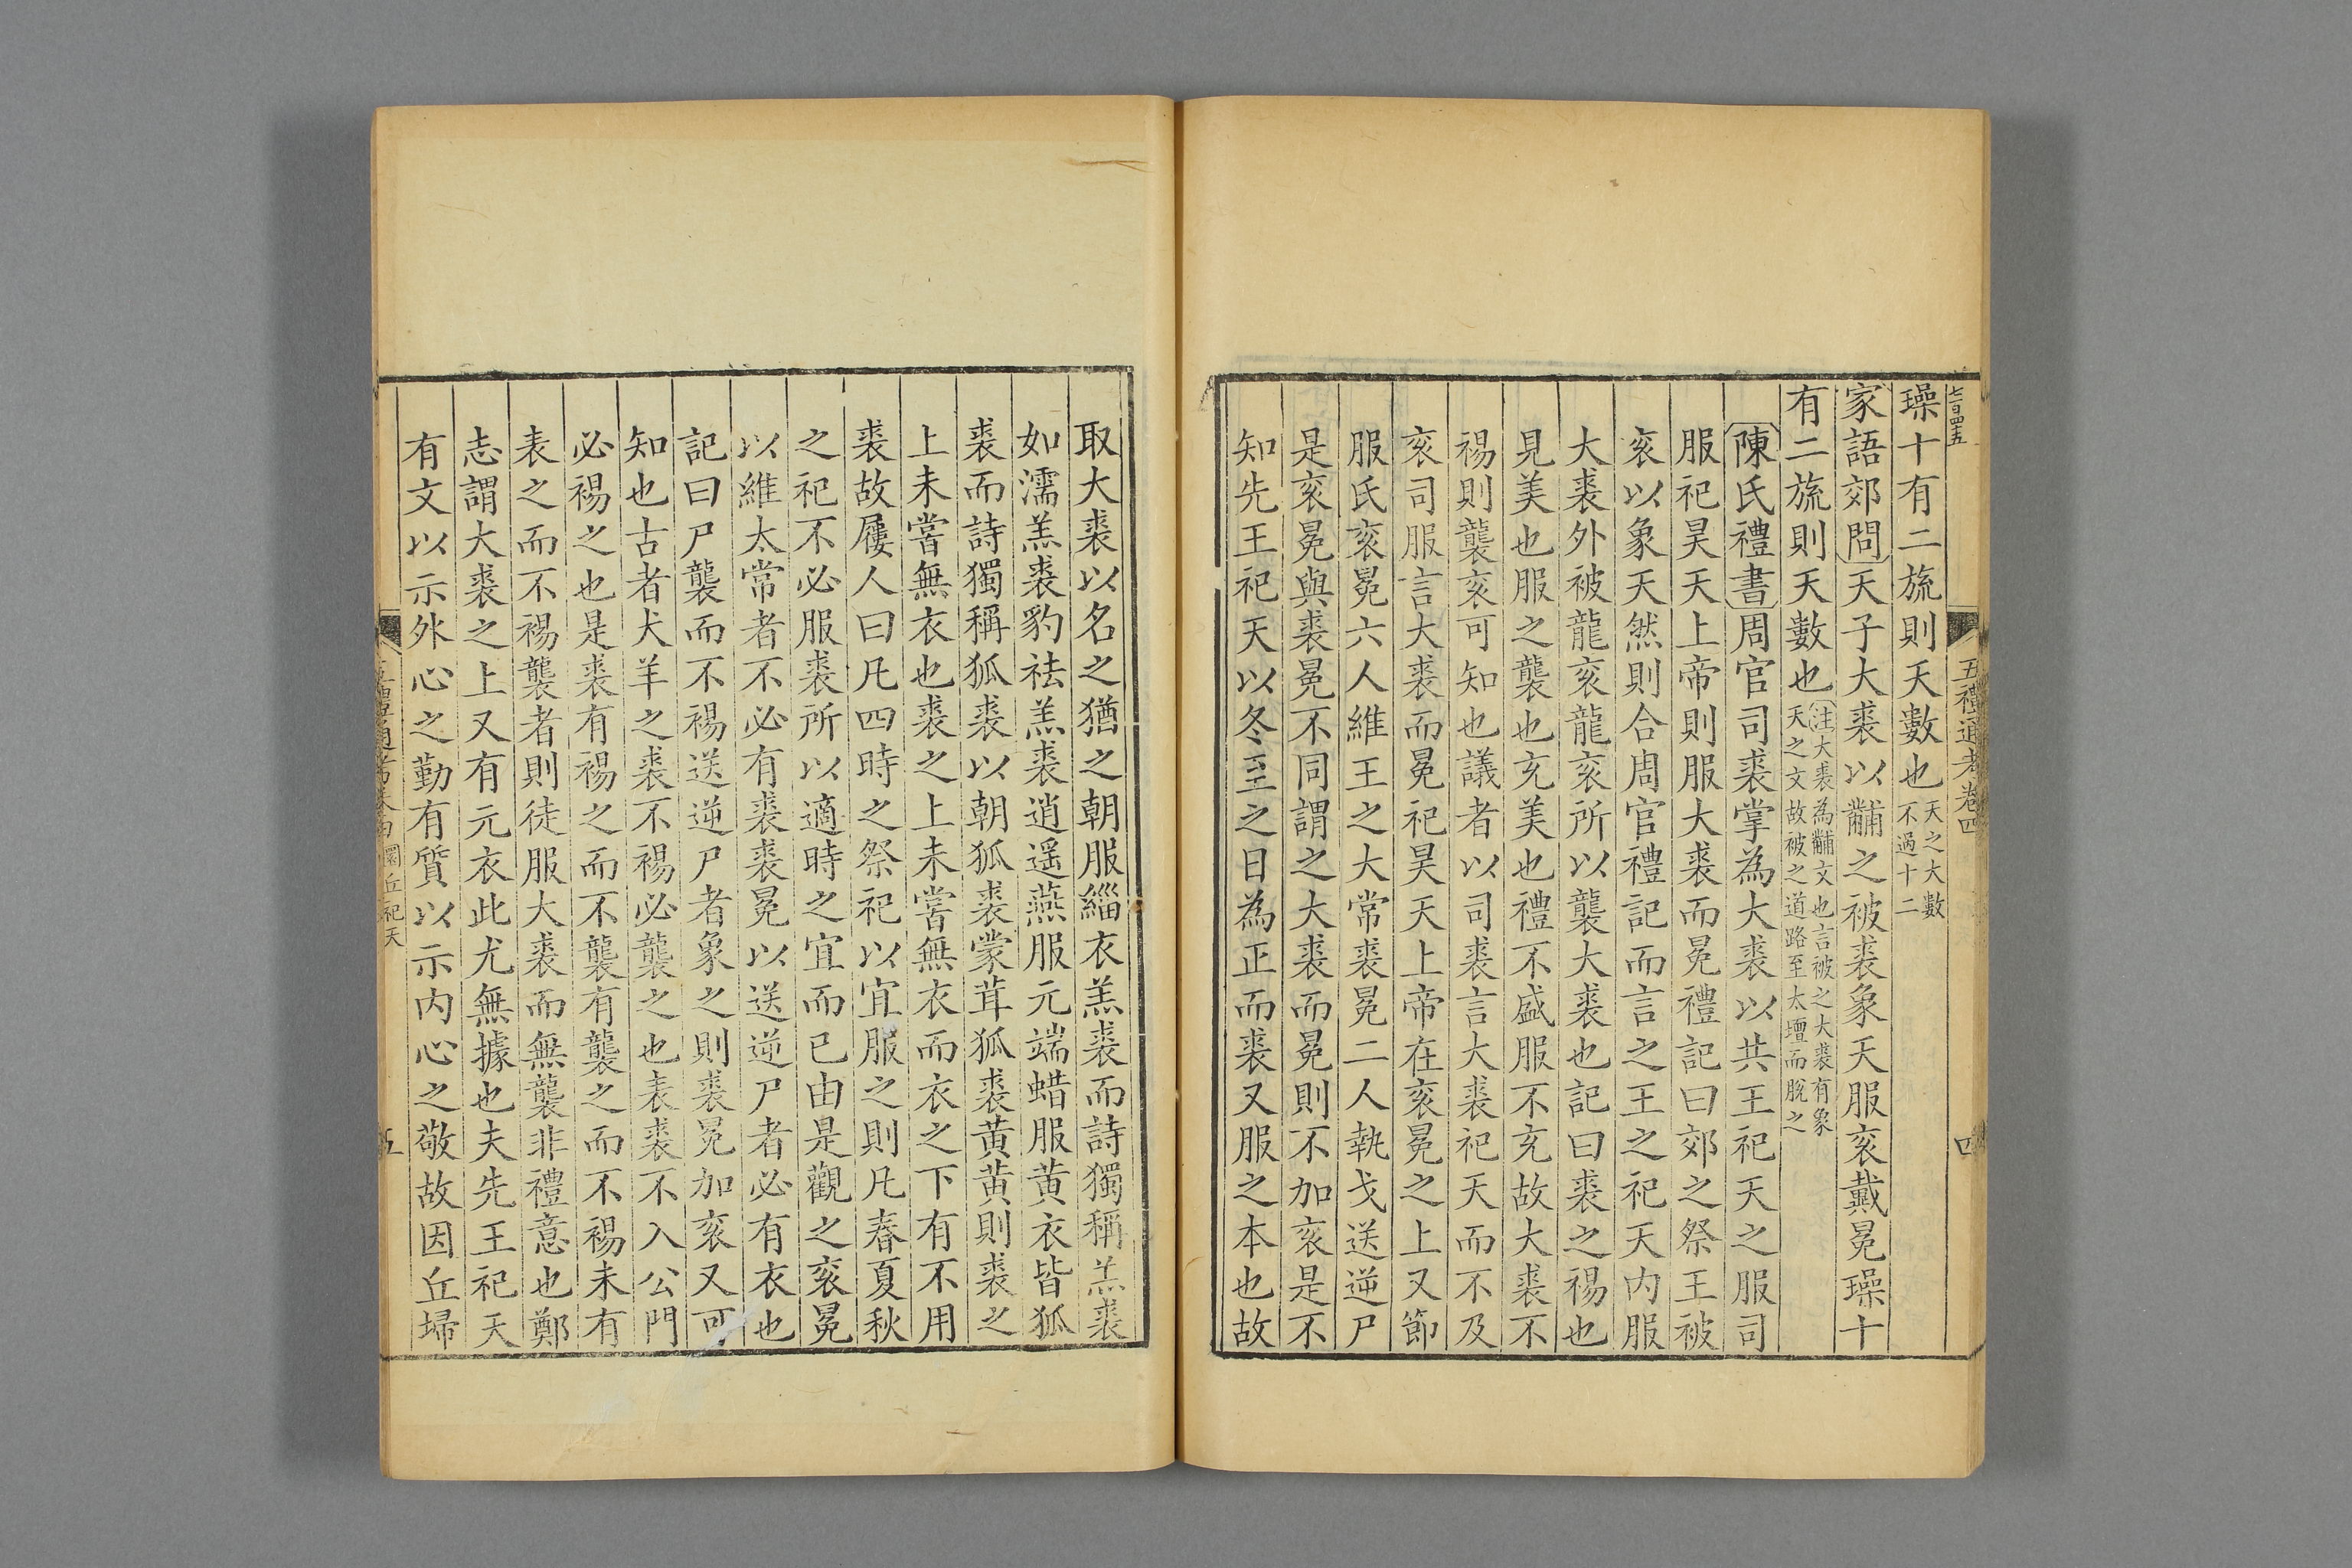 七百四十五
五禮通考卷四
四
璪十有二旒則天數也天之大數不過十二
家語郊問天子大裘以黼之被裘象天服衮戴冕璪十
有二旒則天數也注大裘為黼文也言被之大裘有象天之文故被之道路至太壇而脫之
陳氏禮書周官司裘掌為大裘以共王祀天之服司
服祀昊天上帝則服大裘而冕禮記曰郊之祭王被
衮以象天然則合周官禮記而言之王之祀天内服
大裘外被龍衮龍衮所以襲大裘也記曰裘之裼也
見美也服之襲也充美也禮不盛服不充故大裘不
裼則襲衮可知也議者以司裘言大裘祀天而不及
衮司服言大裘而冕祀昊天上帝在衮冕之上又節
服氏衮冕六人維王之大常裘冕二人執戈送逆尸
是衮冕與裘冕不同謂之大裘而冕則不加衮是不
知先王祀天以冬至之日為正而裘又服之本也故
取大裘以名之猶之朝服緇衣羔裘而詩獨稱羔裘
如濡羔裘豹袪羔裘逍遥燕服元端蜡服黄衣皆狐
裘而詩獨稱狐裘以朝狐裘蒙茸狐裘黄黄則裘之
上未嘗無衣也裘之上未嘗無衣而衣之下有不用
裘故屨人曰凡四時之祭祀以宜服之則凡春夏秋
之祀不必服裘所以適時之宜而已由是觀之衮冕
以維太常者不必有裘裘冕以送逆尸者必有衣也
記曰尸襲而不裼送逆尸者象之則裘冕加衮又可
知也古者犬羊之裘不裼必襲之也表裘不入公門
必裼之也是裘有裼之而不襲有襲之而不裼未有
表之而不裼襲者則徒服大裘而無襲非禮意也鄭
志謂大裘之上又有元衣此尤無據也夫先王祀天
有文以示外心之勤有質以示内心之敬故因丘埽
五禮通考卷四 圜丘祀天
五